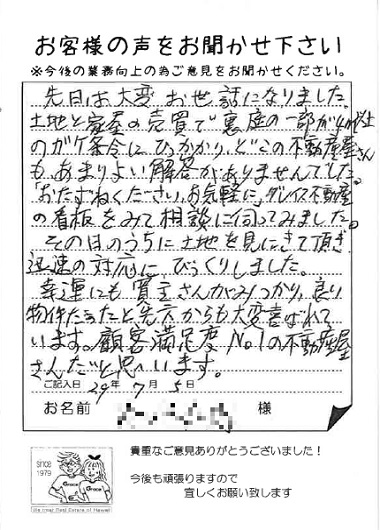 お客様の声をお聞かせ下さい
※今後の業務向上の為ご意見をお聞かせください。
先日は大変お世話になりました。
土地と家屋の売買で裏庭の一部が4m以上
のガケ条令にひっかかり、どこの不動産屋さん
も、あまりよい解答がありませんでした。
「おたずねください。お気軽に」グレイス不動産
の看板をみて相談に伺ってみました。
その日のうちに土地を見にきて頂き
迅速の対応にびっくりしました。
幸運にも買主さんがみつかり、良い
物件だったと先方からも大変喜ばれて
います。顧客満足度No.1の不動産屋
さんだと思います。
ご記入日 29年 7月 5日
お名前 様
貴重なご意見ありがとうございました！
今後も頑張りますので
宜しくお願い致します
since
1979
Grace
Grace
We love Real Estate of Hawaii